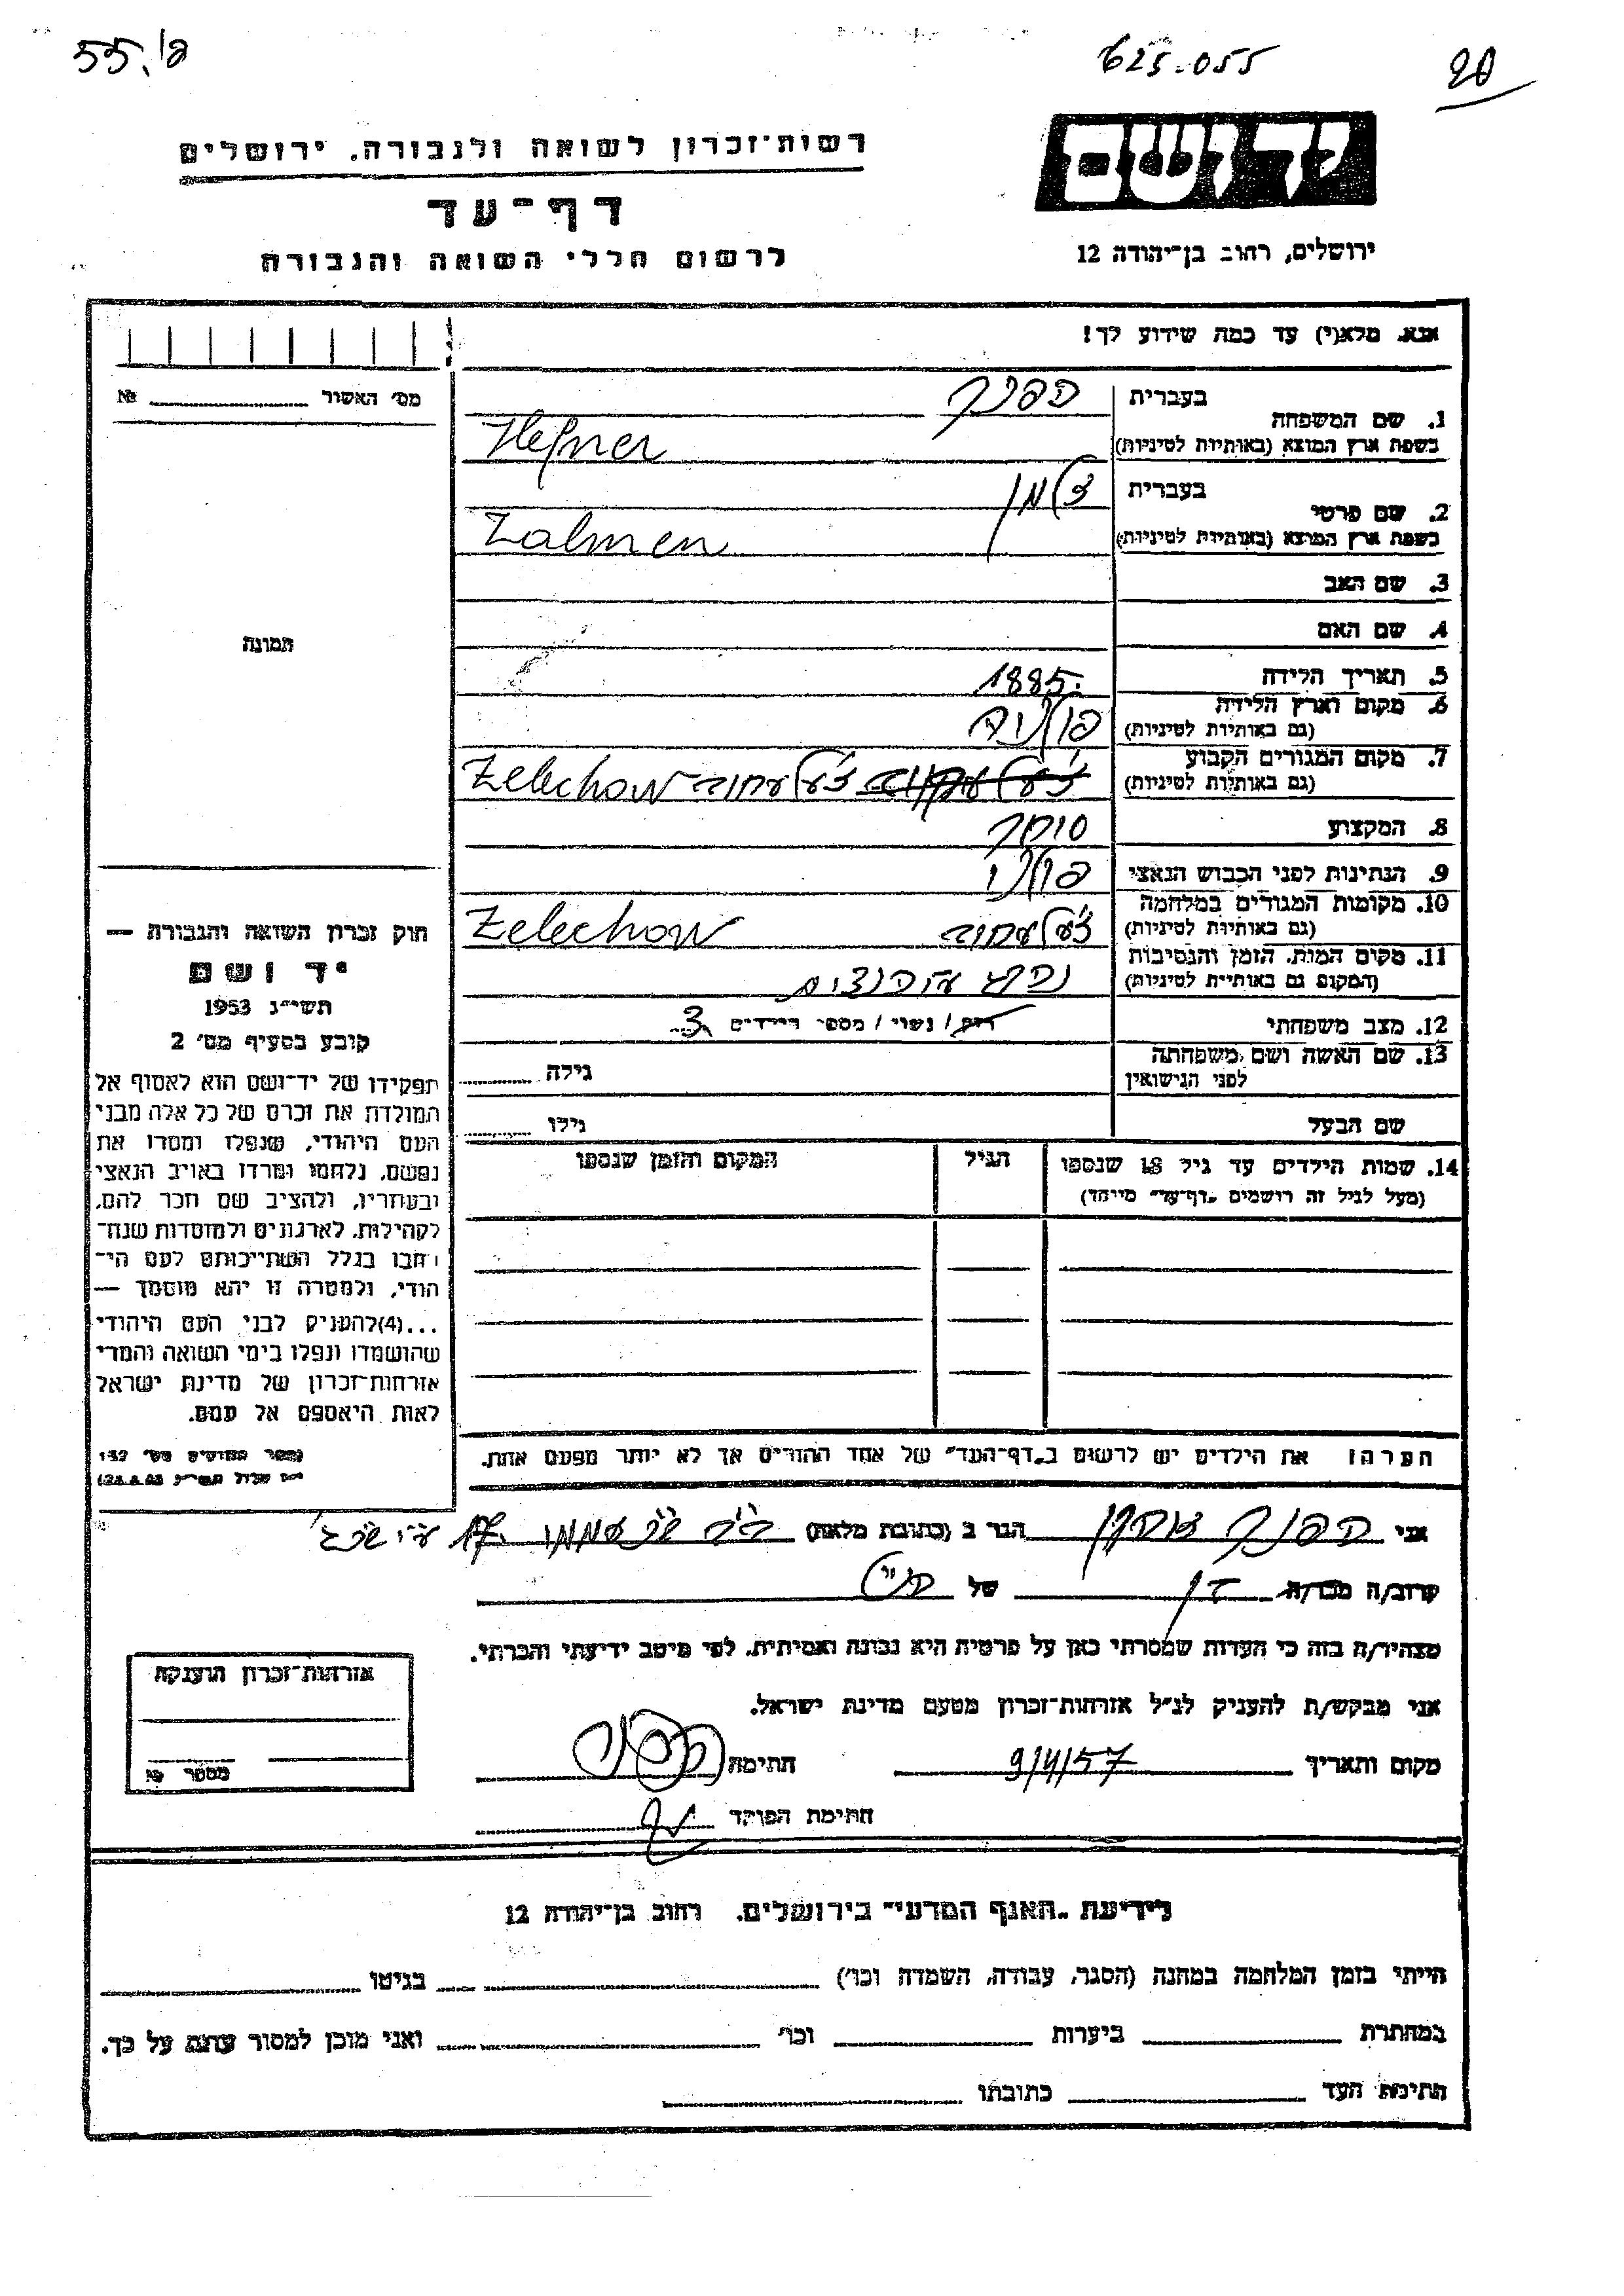 55.פ/
625.055
20
רשות־זכרון לשואה ולגבורה, ירושלים
יד ושם
דף־עד
לרשום חללי השואה והגבורה
ירושלים, רחוב בן־יהודה 12
אנא, מלא(י) עד כמה שידוע לך!
מס' האשור №
1. שם המשפחה בעברית הפנר
בשפת ארץ המוצא (באותיות לטיניות) Hefner
2. שם פרטי בעברית זלמן
בשפת ארץ המוצא (באותיות לטיניות) Zalmen
3. שם האב
4. שם האם
תמונה
5. תאריך הלידה 1885
6. מקום וארץ הלידה (גם באותיות לטיניות) פולניה
7. מקום המגורים הקבוע (גם באותיות לטיניות) זשעלעחוב Zelechow
8. המקצוע סוחר
9. הנתינות לפני הכבוש הנאצי פולני
10. מקומות המגורים במלחמה (גם באותיות לטיניות) זשעלעחוב Zelechow
11. מקום המות, הזמן והנסיבות (המקום גם באותיות לטיניות) נהרג
12. מצב משפחתי רווק / נשוי / מספר הילדים 3
13. שם האשה ושם משפחתה לפני הנישואין גילה
שם הבעל גילו
14. שמות הילדים עד גיל 18 שנספו הגיל המקום והזמן שנספו
(מעל לגיל זה רושמים „דף־עד" מיוחד)
חוק זכרון השואה והגבורה —
יד ושם
תשי"ג 1953
קובע בסעיף מס' 2
תפקידו של יד־ושם הוא לאסוף אל
המולדת את זכרם של כל אלה מבני
העם היהודי, שנפלו ומסרו את
נפשם, נלחמו ומרדו באויב הנאצי
ובעוזריו, ולהציב שם וזכר להם,
לקהילות, לארגונים ולמוסדות שנח־
רבו בגלל השתייכותם לעם הי־
הודי, ולמטרה זו יהא מוסמך —
...(4)להעניק לבני העם היהודי
שהושמדו ונפלו בימי השואה והמרי
אזרחות־זכרון של מדינת ישראל
לאות היאספם אל עמם.
(ספר החוקים מס' 132
הערה: את הילדים יש לרשום ב„דף־העד" של אחד ההורים אך לא יותר מפעם אחת.
אני הפנר הגר ב (כתובת מלאה) 17
קרוב/ה מכר/ה בן של הנ"ל
מצהיר/ה בזה כי העדות שמסרתי כאן על פרטיה היא נכונה ואמיתית, לפי מיטב ידיעתי והכרתי.
אני מבקש/ת להעניק לנ"ל אזרחות־זכרון מטעם מדינת ישראל.
מקום ותאריך 9/4/57 חתימה
חתימת הפוקד
אזרחות־זכרון הוענקה
מספר №
לידיעת „האגף המדעי" בירושלים, רחוב בן־יהודה 12
הייתי בזמן המלחמה במחנה (הסגר, עבודה, השמדה וכו') בגיטו
במחתרת ביערות וכו' ואני מוכן למסור עדות על כך.
חתימת העד כתובתו